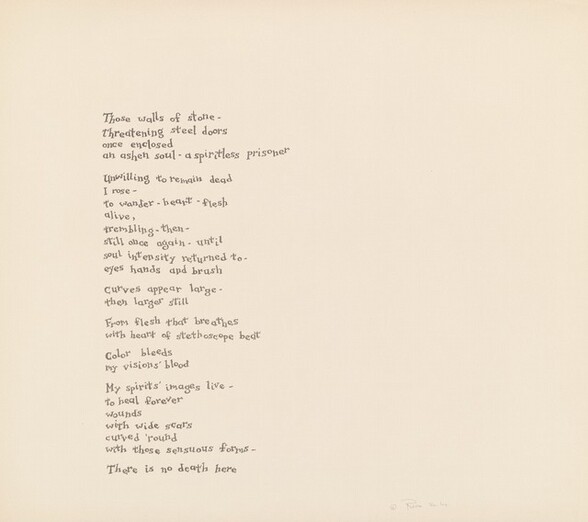 Those walls of stone -
threatening steel doors
once enclosed
an ashen soul - a spiritless prisoner
Unwilling to remain dead
I rose -
to wander - heart - flesh
alive,
trembling - then -
still once again - until
soul intensity returned to -
eyes hands and brush
Curves appear large -
then larger still
From flesh that breathes
with heart of stethoscope beat
Color bleeds
my visions' blood
My spirits' images live -
to heal forever
wounds
with wide scars
curved 'round
with those sensuous forms -
There is no death here